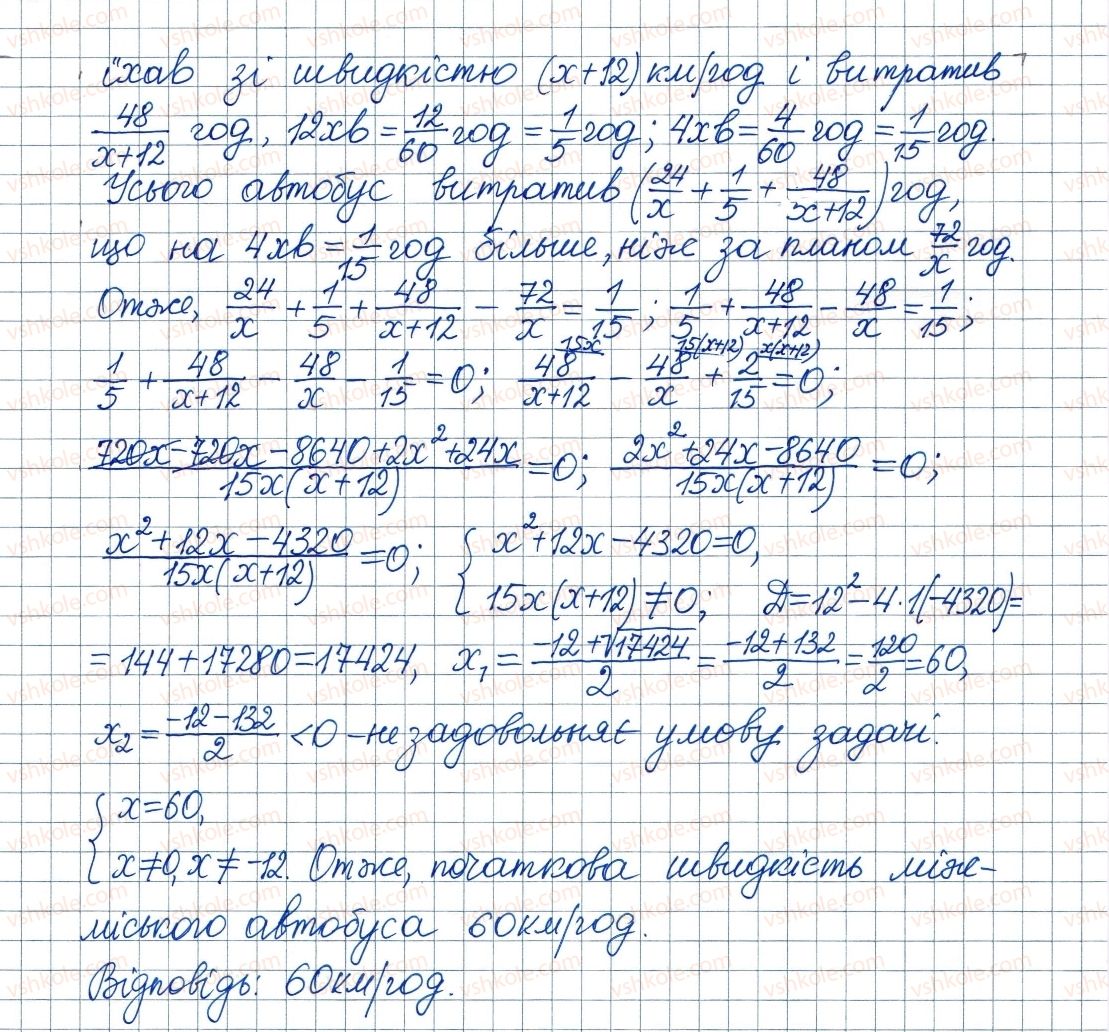 їхав зі швидкістю (x+12) км/год і витратив
48/(x+12) год, 12хв = 12/60 год = 1/5 год; 4хв = 4/60 год = 1/15 год.
Усього автобус витратив (24/x + 1/5 + 48/(x+12)) год,
що на 4хв = 1/15 год більше, ніж за планом 72/x год.
Отже, 24/x + 1/5 + 48/(x+12) − 72/x = 1/15; 1/5 + 48/(x+12) − 48/x = 1/15;
1/5 + 48/(x+12) − 48/x − 1/15 = 0; 48/(x+12) ^15x − 48/x ^15(x+12) + 2/15 ^x(x+12) = 0;
(720x − 720x − 8640 + 2x² + 24x)/(15x(x+12)) = 0; (2x² + 24x − 8640)/(15x(x+12)) = 0;
(x² + 12x − 4320)/(15x(x+12)) = 0; { x² + 12x − 4320 = 0,
15x(x+12) ≠ 0; Д = 12² − 4·1(−4320) =
= 144 + 17280 = 17424, x₁ = (−12 + √17424)/2 = (−12 + 132)/2 = 120/2 = 60,
x₂ = (−12 − 132)/2 < 0 − не задовольняє умову задачі.
{ x = 60,
x ≠ 0, x ≠ −12. Отже, початкова швидкість між-
міського автобуса 60км/год.
Відповідь: 60км/год.